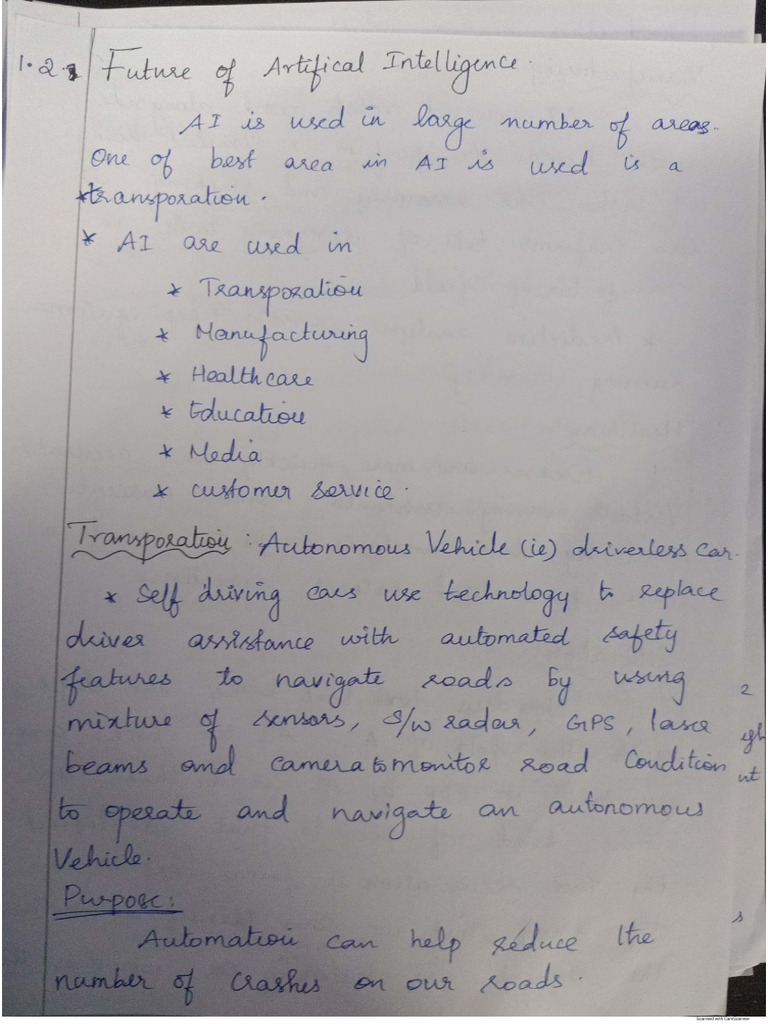 1.2.1 Future of Artifical Intelligence.
AI is used in large number of areas.
One of best area in AI is used is a
*transporation.
* AI are used in
* Transporation
* Manufacturing
* Healthcare
* Education
* Media
* customer service.
Transporation : Autonomous Vehicle (ie) driverless car.
* Self driving cars use technology to replace
driver assistance with automated safety
features to navigate roads by using
mixture of sensors, s/w radar, GPS, laser
beams and camera to monitor road Condition
to operate and navigate an autonomous
Vehicle.
Purpose:
Automation can help reduce the
number of crashes on our roads.
Scanned with CamScanner